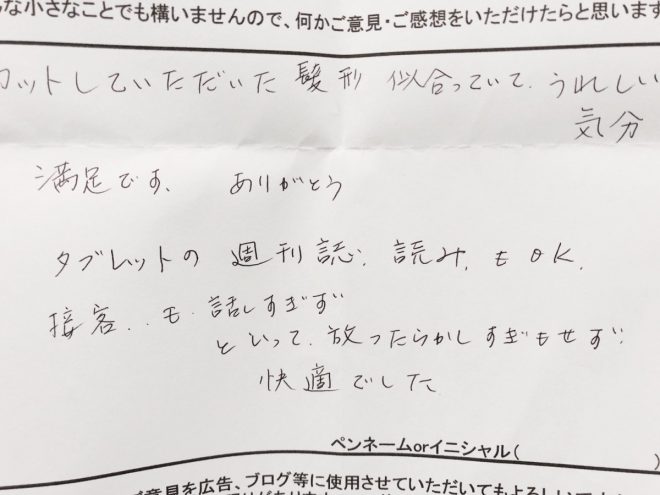 な小さなことでも構いませんので、何かご意見・ご感想をいただけたらと思います
カットしていただいた 髪形 似合っていて、うれしい
気分
満足です、 ありがとう
タブレットの 週刊誌、読み、もOK、
接客、、も、話しすぎず
といって、放ったらかしすぎもせず、
快適でした
ペンネームorイニシャル( )
ご意見を広告、ブログ等に使用させていただいてもよろしいで